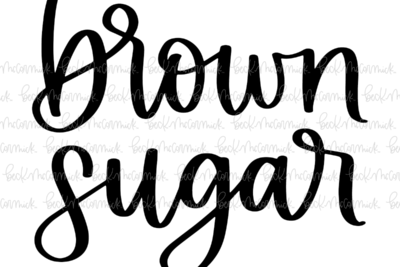 brown
sugar